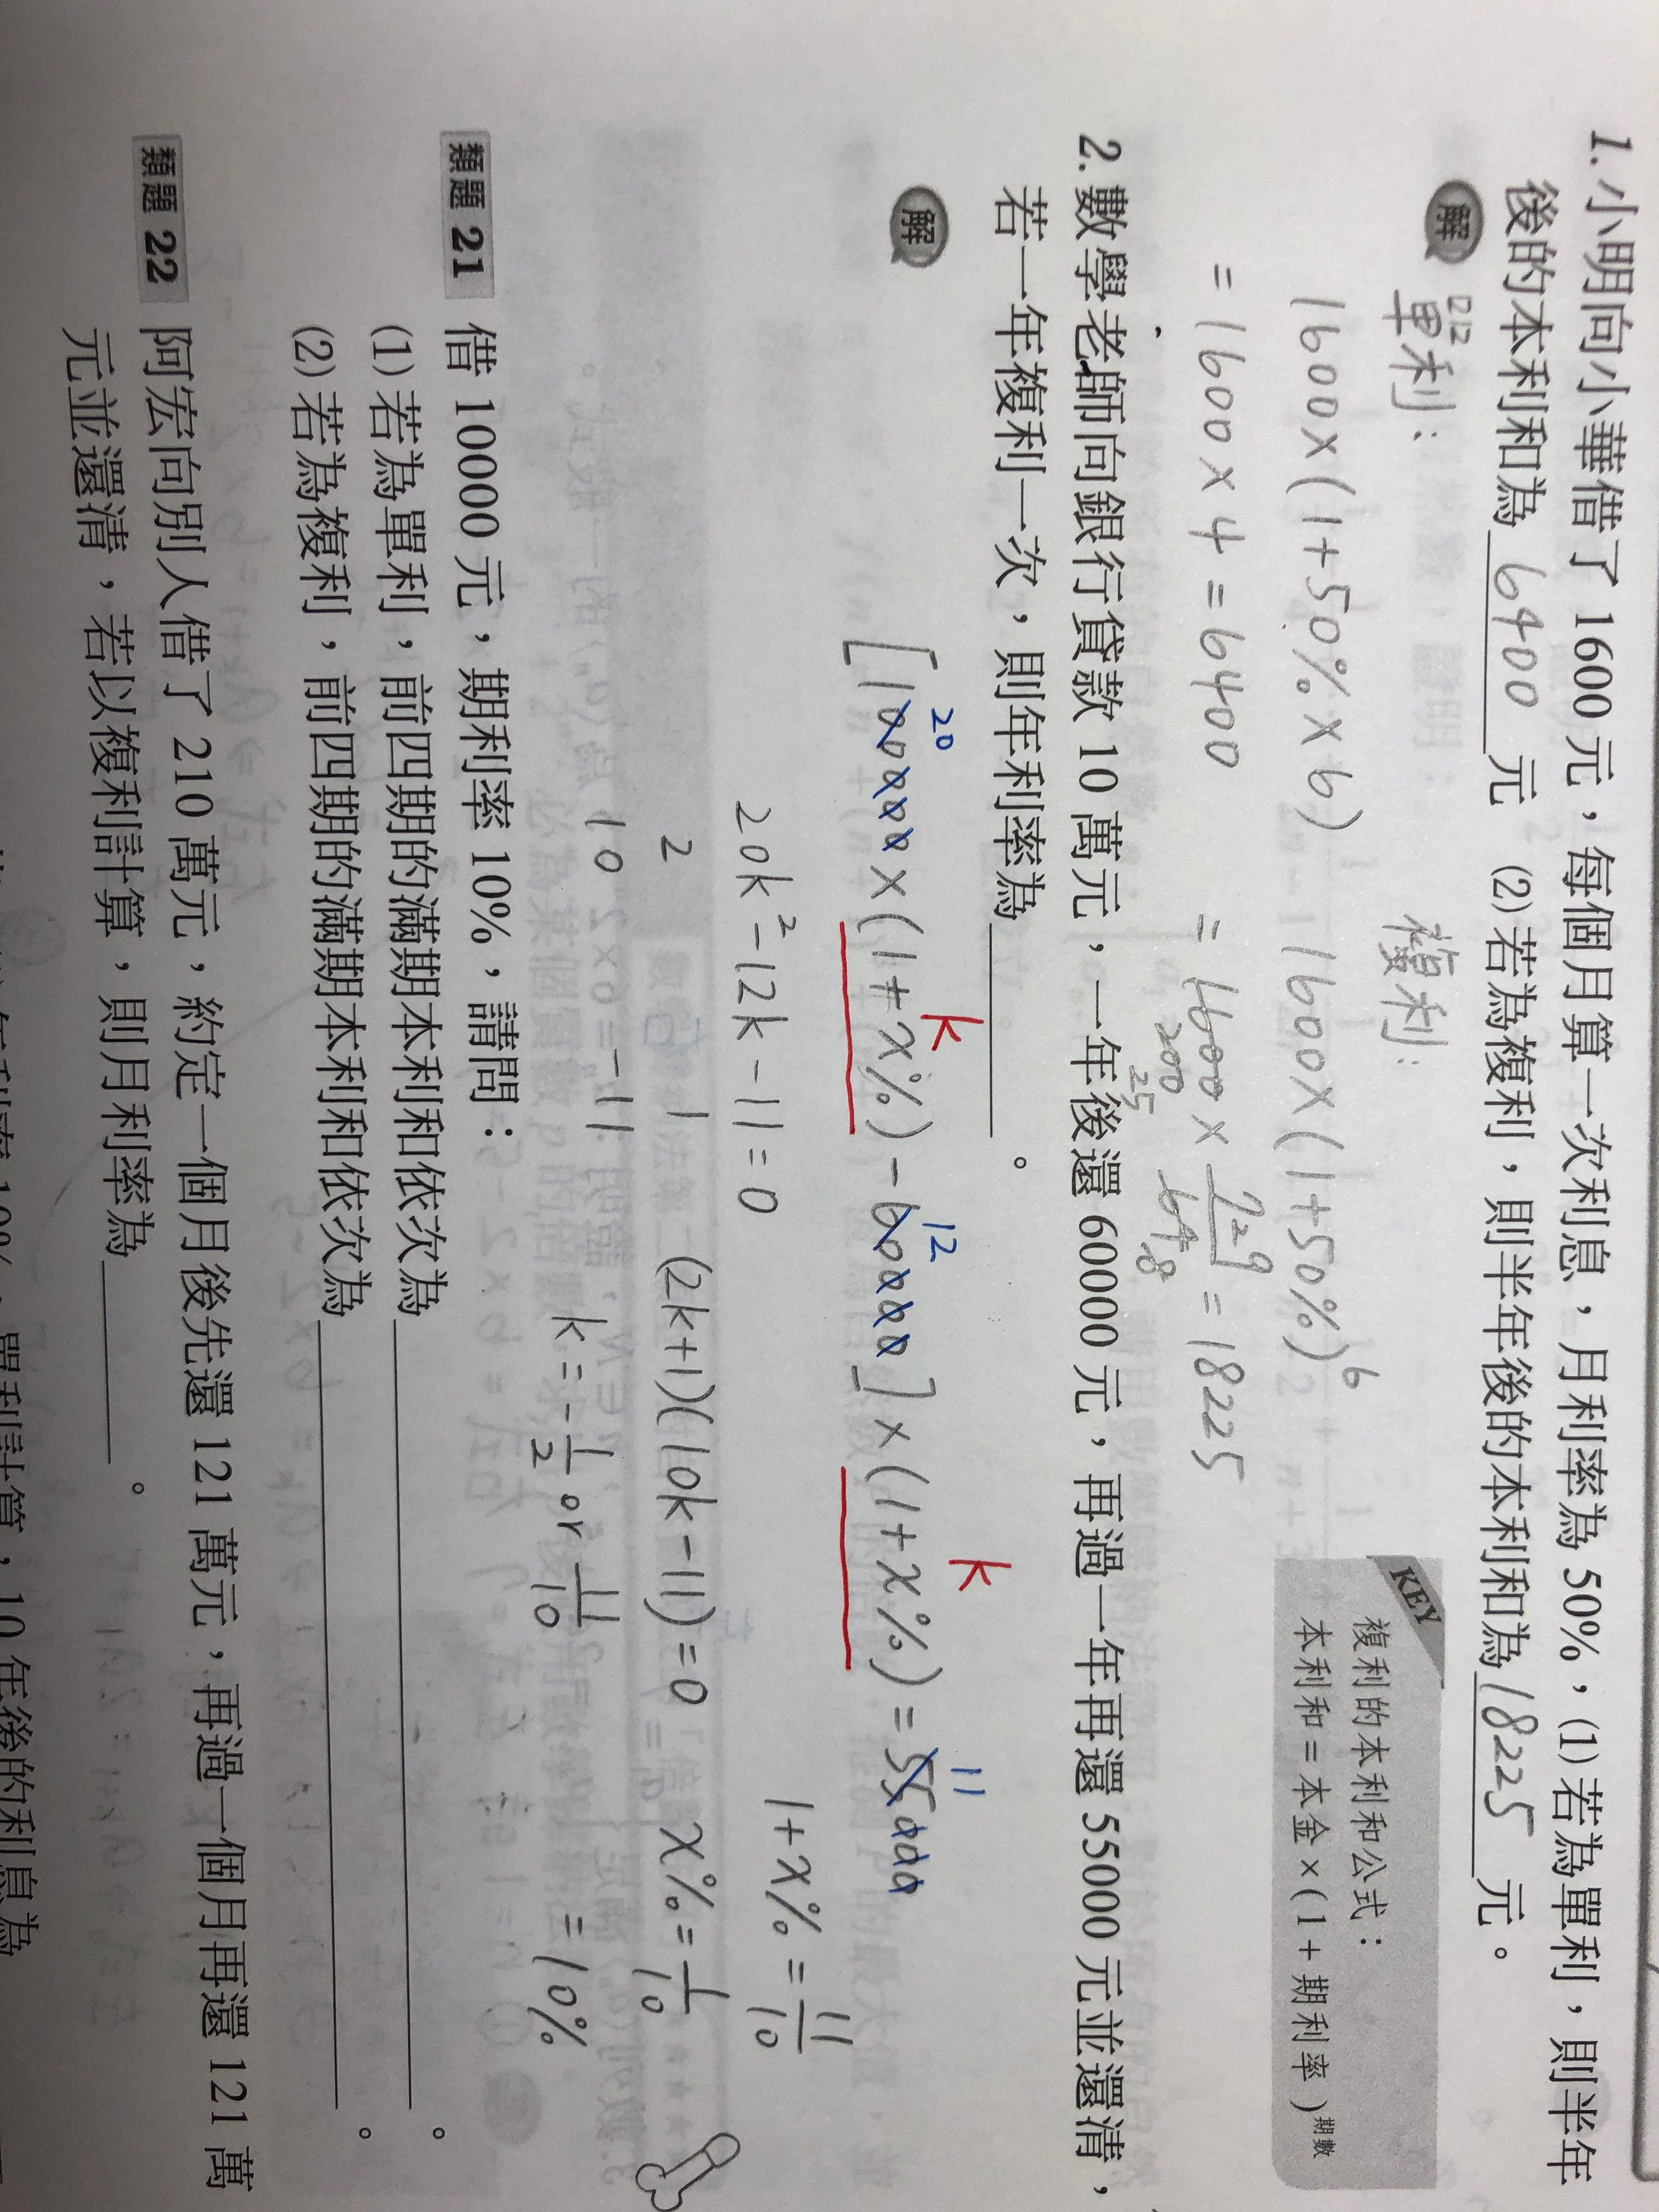 1. 小明向小華借了 1600 元，每個月算一次利息，月利率為 50%，(1)若為單利，則半年
後的本利和為 6400 元 (2)若為複利，則半年後的本利和為 18225 元。
解 單利： 複利：
1600×(1+50%×6) 1600×(1+50%)⁶
=1600×4=6400 =1600×729/64=18225
200 25 8
KEY
複利的本利和公式：
本利和=本金×(1+期利率)期數
2. 數學老師向銀行貸款 10 萬元，一年後還 60000 元，再過一年再還 55000 元並還清，
若一年複利一次，則年利率為＿＿＿＿。
解
20 k 12 k 11
[100000×(1+x%)-60000]×(1+x%)=55000
20k²-12k-11=0
1+x%=11/10
2 1 (2k+1)(10k-11)=0 x%=1/10
10 -11 k=-1/2 or 11/10 =10%
類題 21 借 10000 元，期利率 10%，請問：
(1)若為單利，前四期的滿期本利和依次為＿＿＿＿。
(2)若為複利，前四期的滿期本利和依次為＿＿＿＿。
類題 22 阿宏向別人借了 210 萬元，約定一個月後先還 121 萬元，再過一個月再還 121 萬
元並還清，若以複利計算，則月利率為＿＿＿＿。
年利率 10%，單利計算，10 年後的利息為